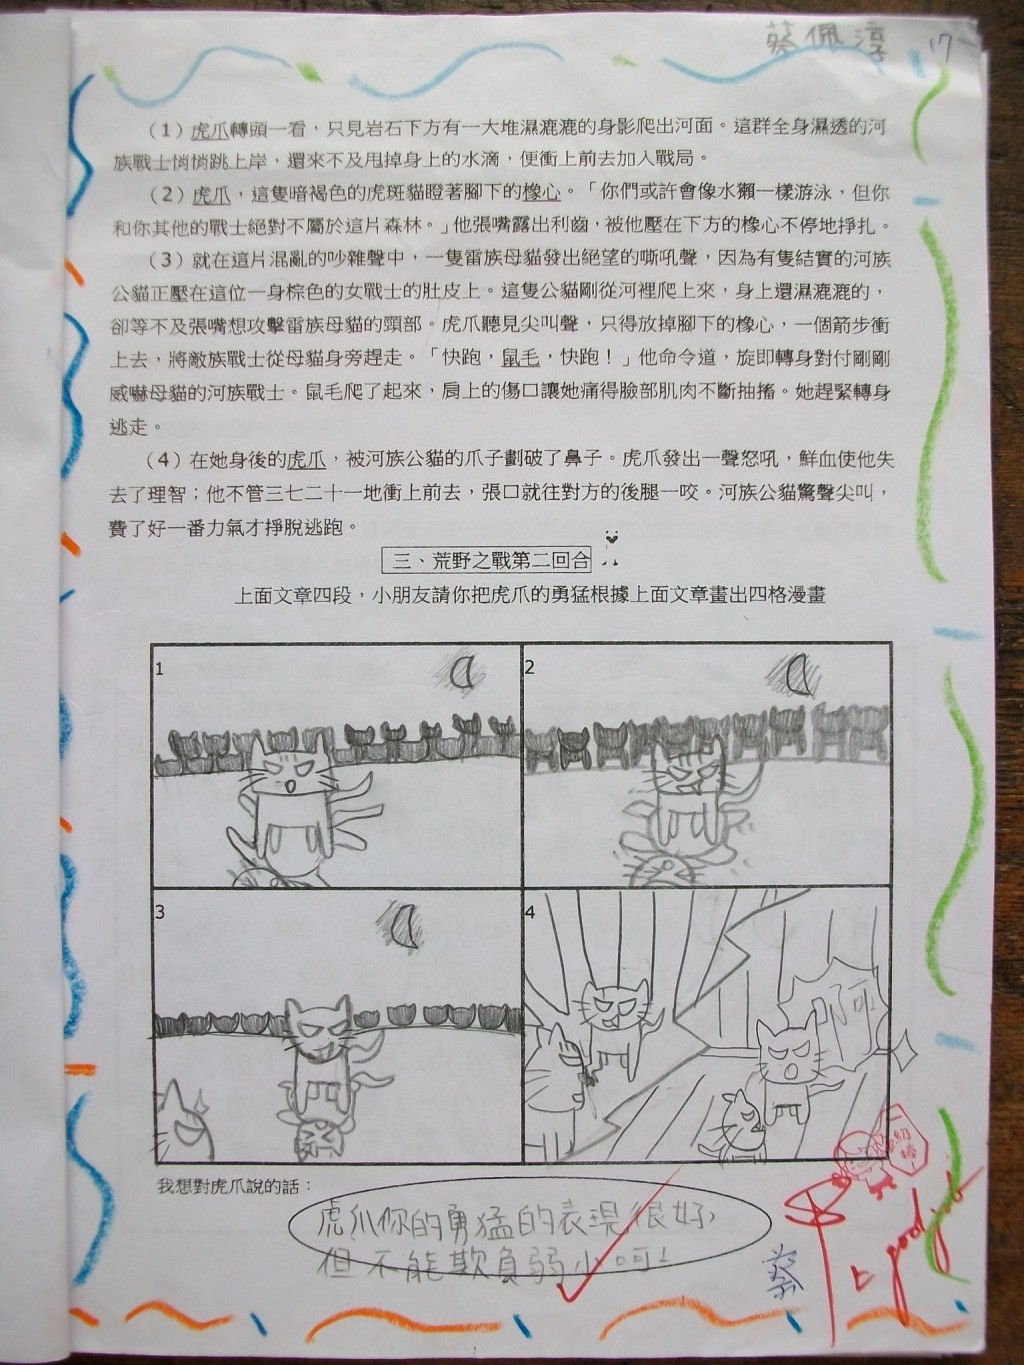 蔡佩淳 17
（1）虎爪轉頭一看，只見岩石下方有一大堆濕漉漉的身影爬出河面。這群全身濕透的河
族戰士悄悄跳上岸，還來不及甩掉身上的水滴，便衝上前去加入戰局。
（2）虎爪，這隻暗褐色的虎斑貓瞪著腳下的橡心。「你們或許會像水獺一樣游泳，但你
和你其他的戰士絕對不屬於這片森林。」他張嘴露出利齒，被他壓在下方的橡心不停地掙扎。
（3）就在這片混亂的吵雜聲中，一隻雷族母貓發出絕望的嘶吼聲，因為有隻結實的河族
公貓正壓在這位一身棕色的女戰士的肚皮上。這隻公貓剛從河裡爬上來，身上還濕漉漉的，
卻等不及張嘴想攻擊雷族母貓的頸部。虎爪聽見尖叫聲，只得放掉腳下的橡心，一個箭步衝
上去，將敵族戰士從母貓身旁趕走。「快跑，鼠毛，快跑！」他命令道，旋即轉身對付剛剛
威嚇母貓的河族戰士。鼠毛爬了起來，肩上的傷口讓她痛得臉部肌肉不斷抽搐。她趕緊轉身
逃走。
（4）在她身後的虎爪，被河族公貓的爪子劃破了鼻子。虎爪發出一聲怒吼，鮮血使他失
去了理智；他不管三七二十一地衝上前去，張口就往對方的後腿一咬。河族公貓驚聲尖叫，
費了好一番力氣才掙脫逃跑。
三、荒野之戰第二回合
上面文章四段，小朋友請你把虎爪的勇猛根據上面文章畫出四格漫畫
1
2
3
4
啊
我想對虎爪說的話：
虎爪你的勇猛的表現很好，
但不能欺負弱小呵！
蔡
上 good job